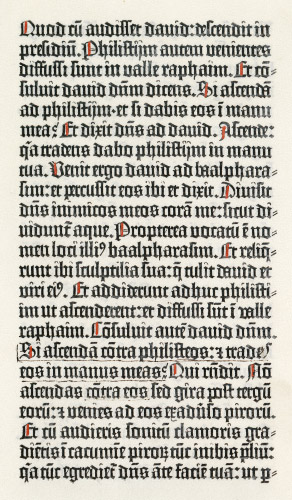 Quod cū audisset david: descendit in
presidiū. Philistiim autem venientes
diffusi sunt in valle raphaim. Et cō-
suluit david dūm dicens. Si ascendā
ad philistiim: et si dabis eos ī manu
mea? Et dixit dn̄s ad david. Ascende:
q̄a tradens dabo philistiim in manu
tua. Venit ergo david ad baalphara-
sim: et percussit eos ibi et dixit. Divisit
dn̄s inimicos meos corā me: sicut di-
vidunt̄ aque. Propterea vocatū ē no-
men loci illiꝰ baalpharasim. Et reliq̄-
runt ibi sculptilia sua: q̄ tulit david et
viri eiꝰ. Et addiderunt adhuc philisti-
im ut ascenderent: et diffusi sūt ī valle
raphaim. Cōsuluit autē david dūm.
Si ascendā cōtra philisteos: ⁊ tradas
eos in manus meas? Qui rn̄dit. Nō
ascendas cōtra eos sed gira post tergū
eorū: ⁊ venies ad eos exadūso pirorū.
Et cū audieris sonitū clamoris gra-
diētis ī cacumīe piroꝝ tūc inibis p̄liū:
q̄a tūc egrediet̄ dn̄s āte faciē tuā: ut ꝑ-